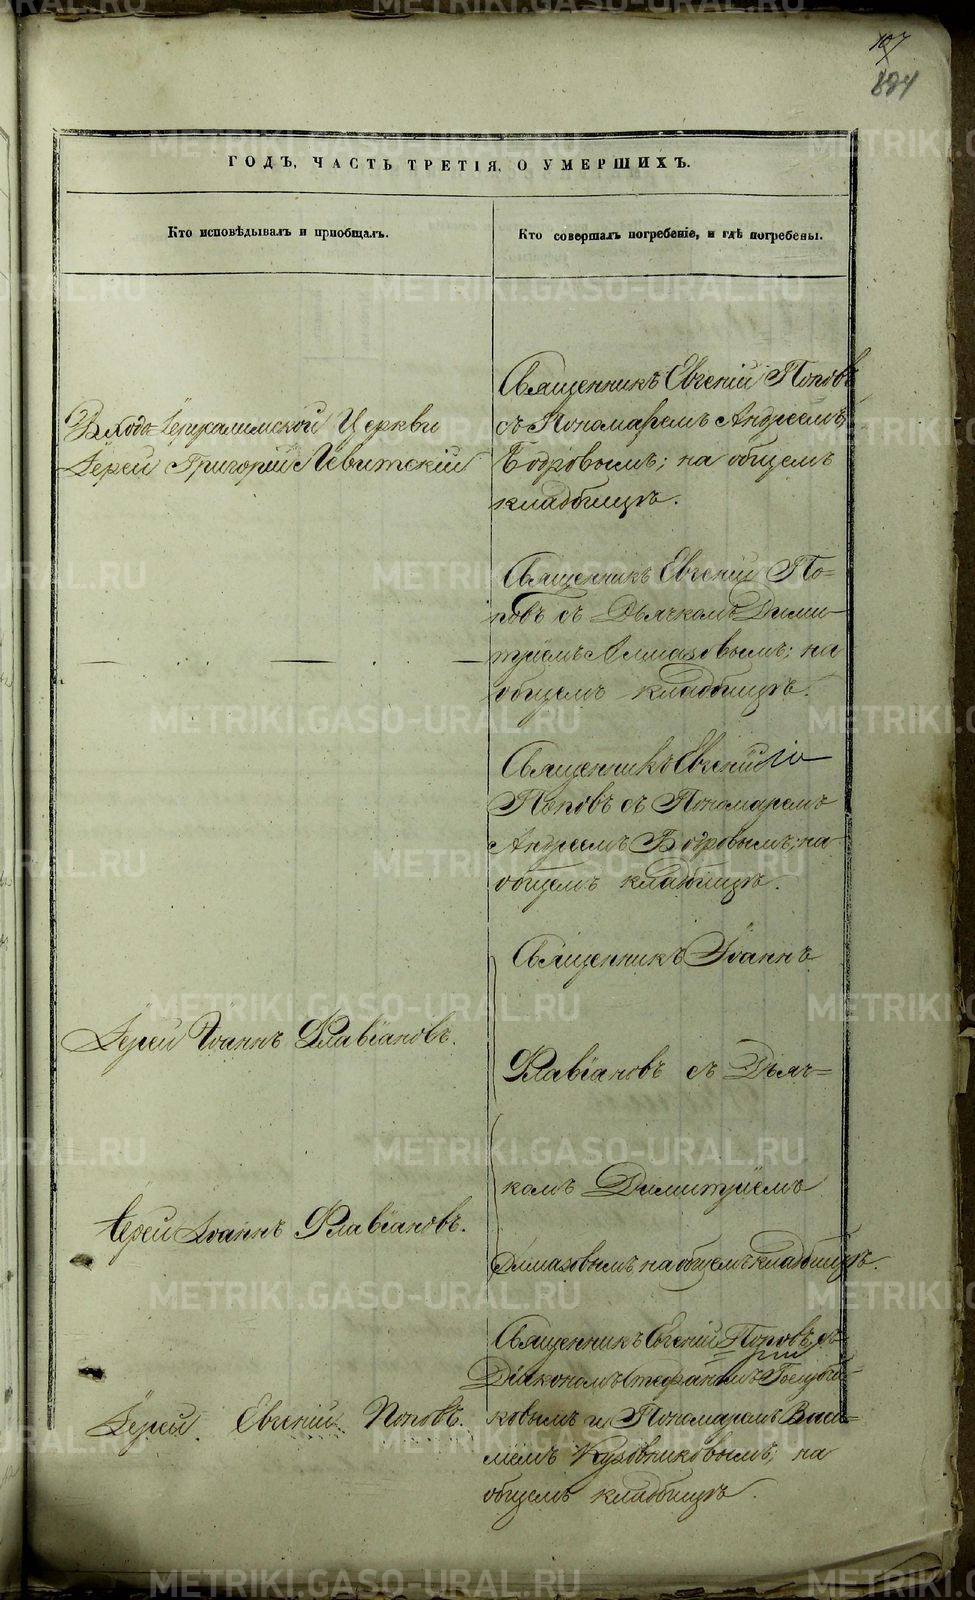 107
884
ГОДЪ, ЧАСТЬ ТРЕТІЯ, О УМЕРШИХЪ.
Кто исповѣдывалъ и пріобщалъ.
Кто совершалъ погребеніе, и гдѣ погребены.
Входо-Іерусалимской Церкви
Іерей Григорій Левитскій
Священникъ Евгеній Поповъ
съ Пономаремъ Андреемъ
Бодровымъ; на общемъ
кладбищѣ.
Священникъ Евгеній По-
повъ съ Дьячкомъ Дими-
тріемъ Алмазовымъ; на
общемъ кладбищѣ.
Священникъ Евгеній
Поповъ съ Пономаремъ
Андреемъ Бодровымъ; на
общемъ кладбищѣ.
Іерей Іоаннъ Флавіановъ.
Іерей Іоаннъ Флавіановъ.
Священникъ Іоаннъ
Флавіановъ съ Дьяч=
комъ Димитріемъ
Алмазовымъ на общемъ кладбищѣ.
Іерей Евгеній Поповъ.
Священникъ Евгеній Поповъ съ
Діакономъ Стефаномъ
ковымъ и Пономаремъ Васи=
ліемъ Кузовниковымъ; на
общемъ кладбищѣ.
METRIKI.GASO-URAL.RU